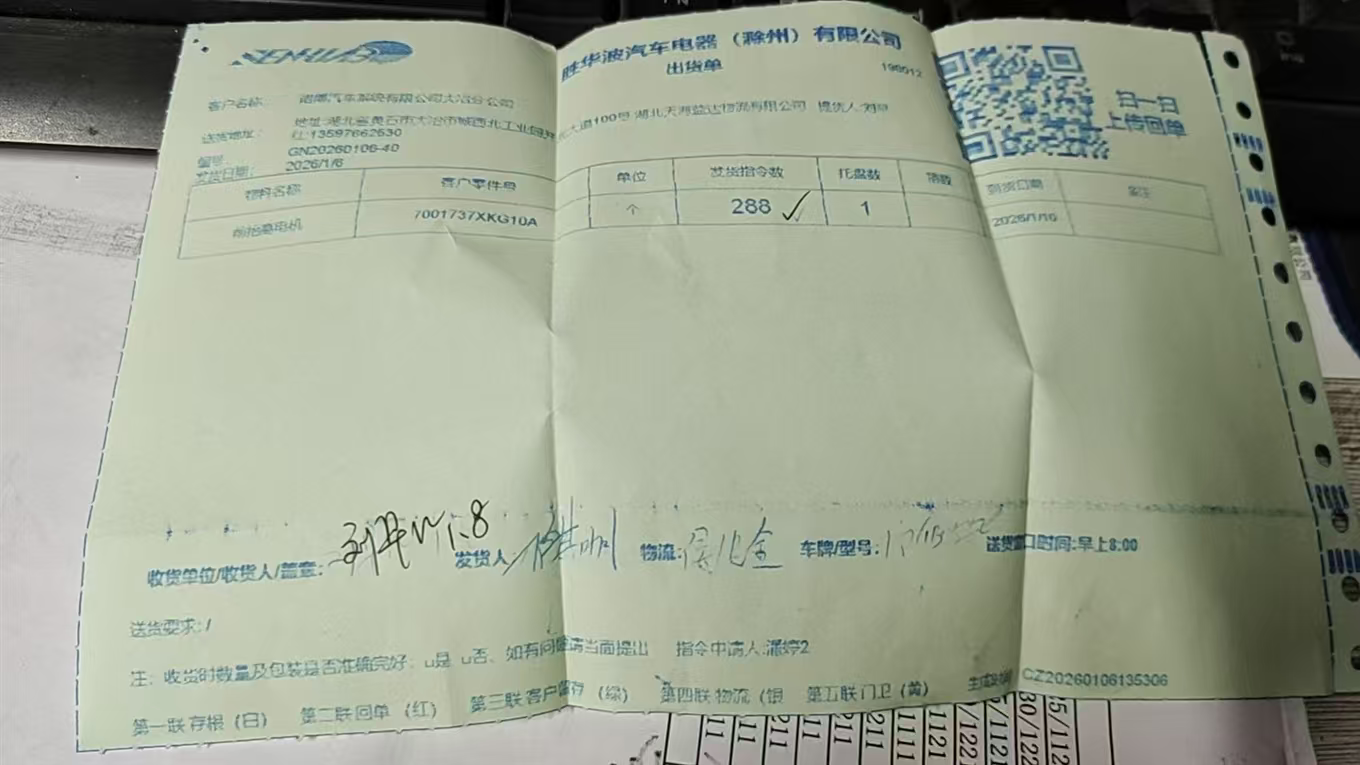 SENHUAS
胜华波汽车电器（滁州）有限公司
出货单
190012
扫一扫
上传回单
客户名称： 诺博汽车系统有限公司大冶分公司
送货地址： 地址:湖北省黄石市大冶市城西北工业园 大道100号 湖北天海益达物流有限公司 提货人:刘
13597662630
编号: GN20260106-40
发货日期: 2026/1/6
物料名称 客户零件号 单位 发货指令数 托盘数 箱数 到货日期 备注
前抬高电机 7001737XKG10A 个 288 ✓ 1 2026/1/10
收货单位/收货人/盖章: 1.8 发货人: 物流: 车牌/型号: 送货窗口时间:早上8:00
送货要求: /
注：收货时数量及包装是否准确完好：u是 u否、如有问题请当面提出 指令申请人:潘婷2
第一联 存根（白） 第二联 回单（红） 第三联 客户留存（绿） 第四联 物流（银 第五联 门卫（黄） CZ20260106135306